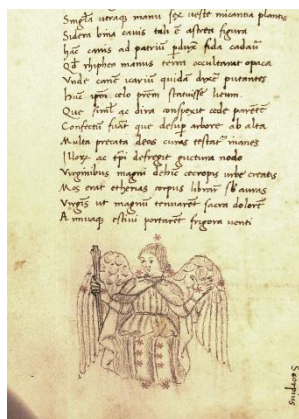 Singla utraque manu sex veste micantia plantis
Sidera bina cavis tali ē astrea figura
hāc canis ad patriū p̄dux fida cadau
Qđ rhiphea manus terra occultarat opaca
Unde canē icariū quidā dixē putantes
huc ip̄m celo prem statuisse lieum.
Que simĺ ac dira conspexit cede parētē
Confectū fuāt que desup arbore ab alta
Multa precata deos curas testat᷒ manes
Illoꝝ ac tpi defregit guctura nodo
Virginibus magni dehīc cecropis urbe creatis
Mos erat etherias corpus librari sb auras
Virgīs ut magnū tenuarēt sacra dolorē
A mnuaq estiui portarēt frigora uenti
Scorpius